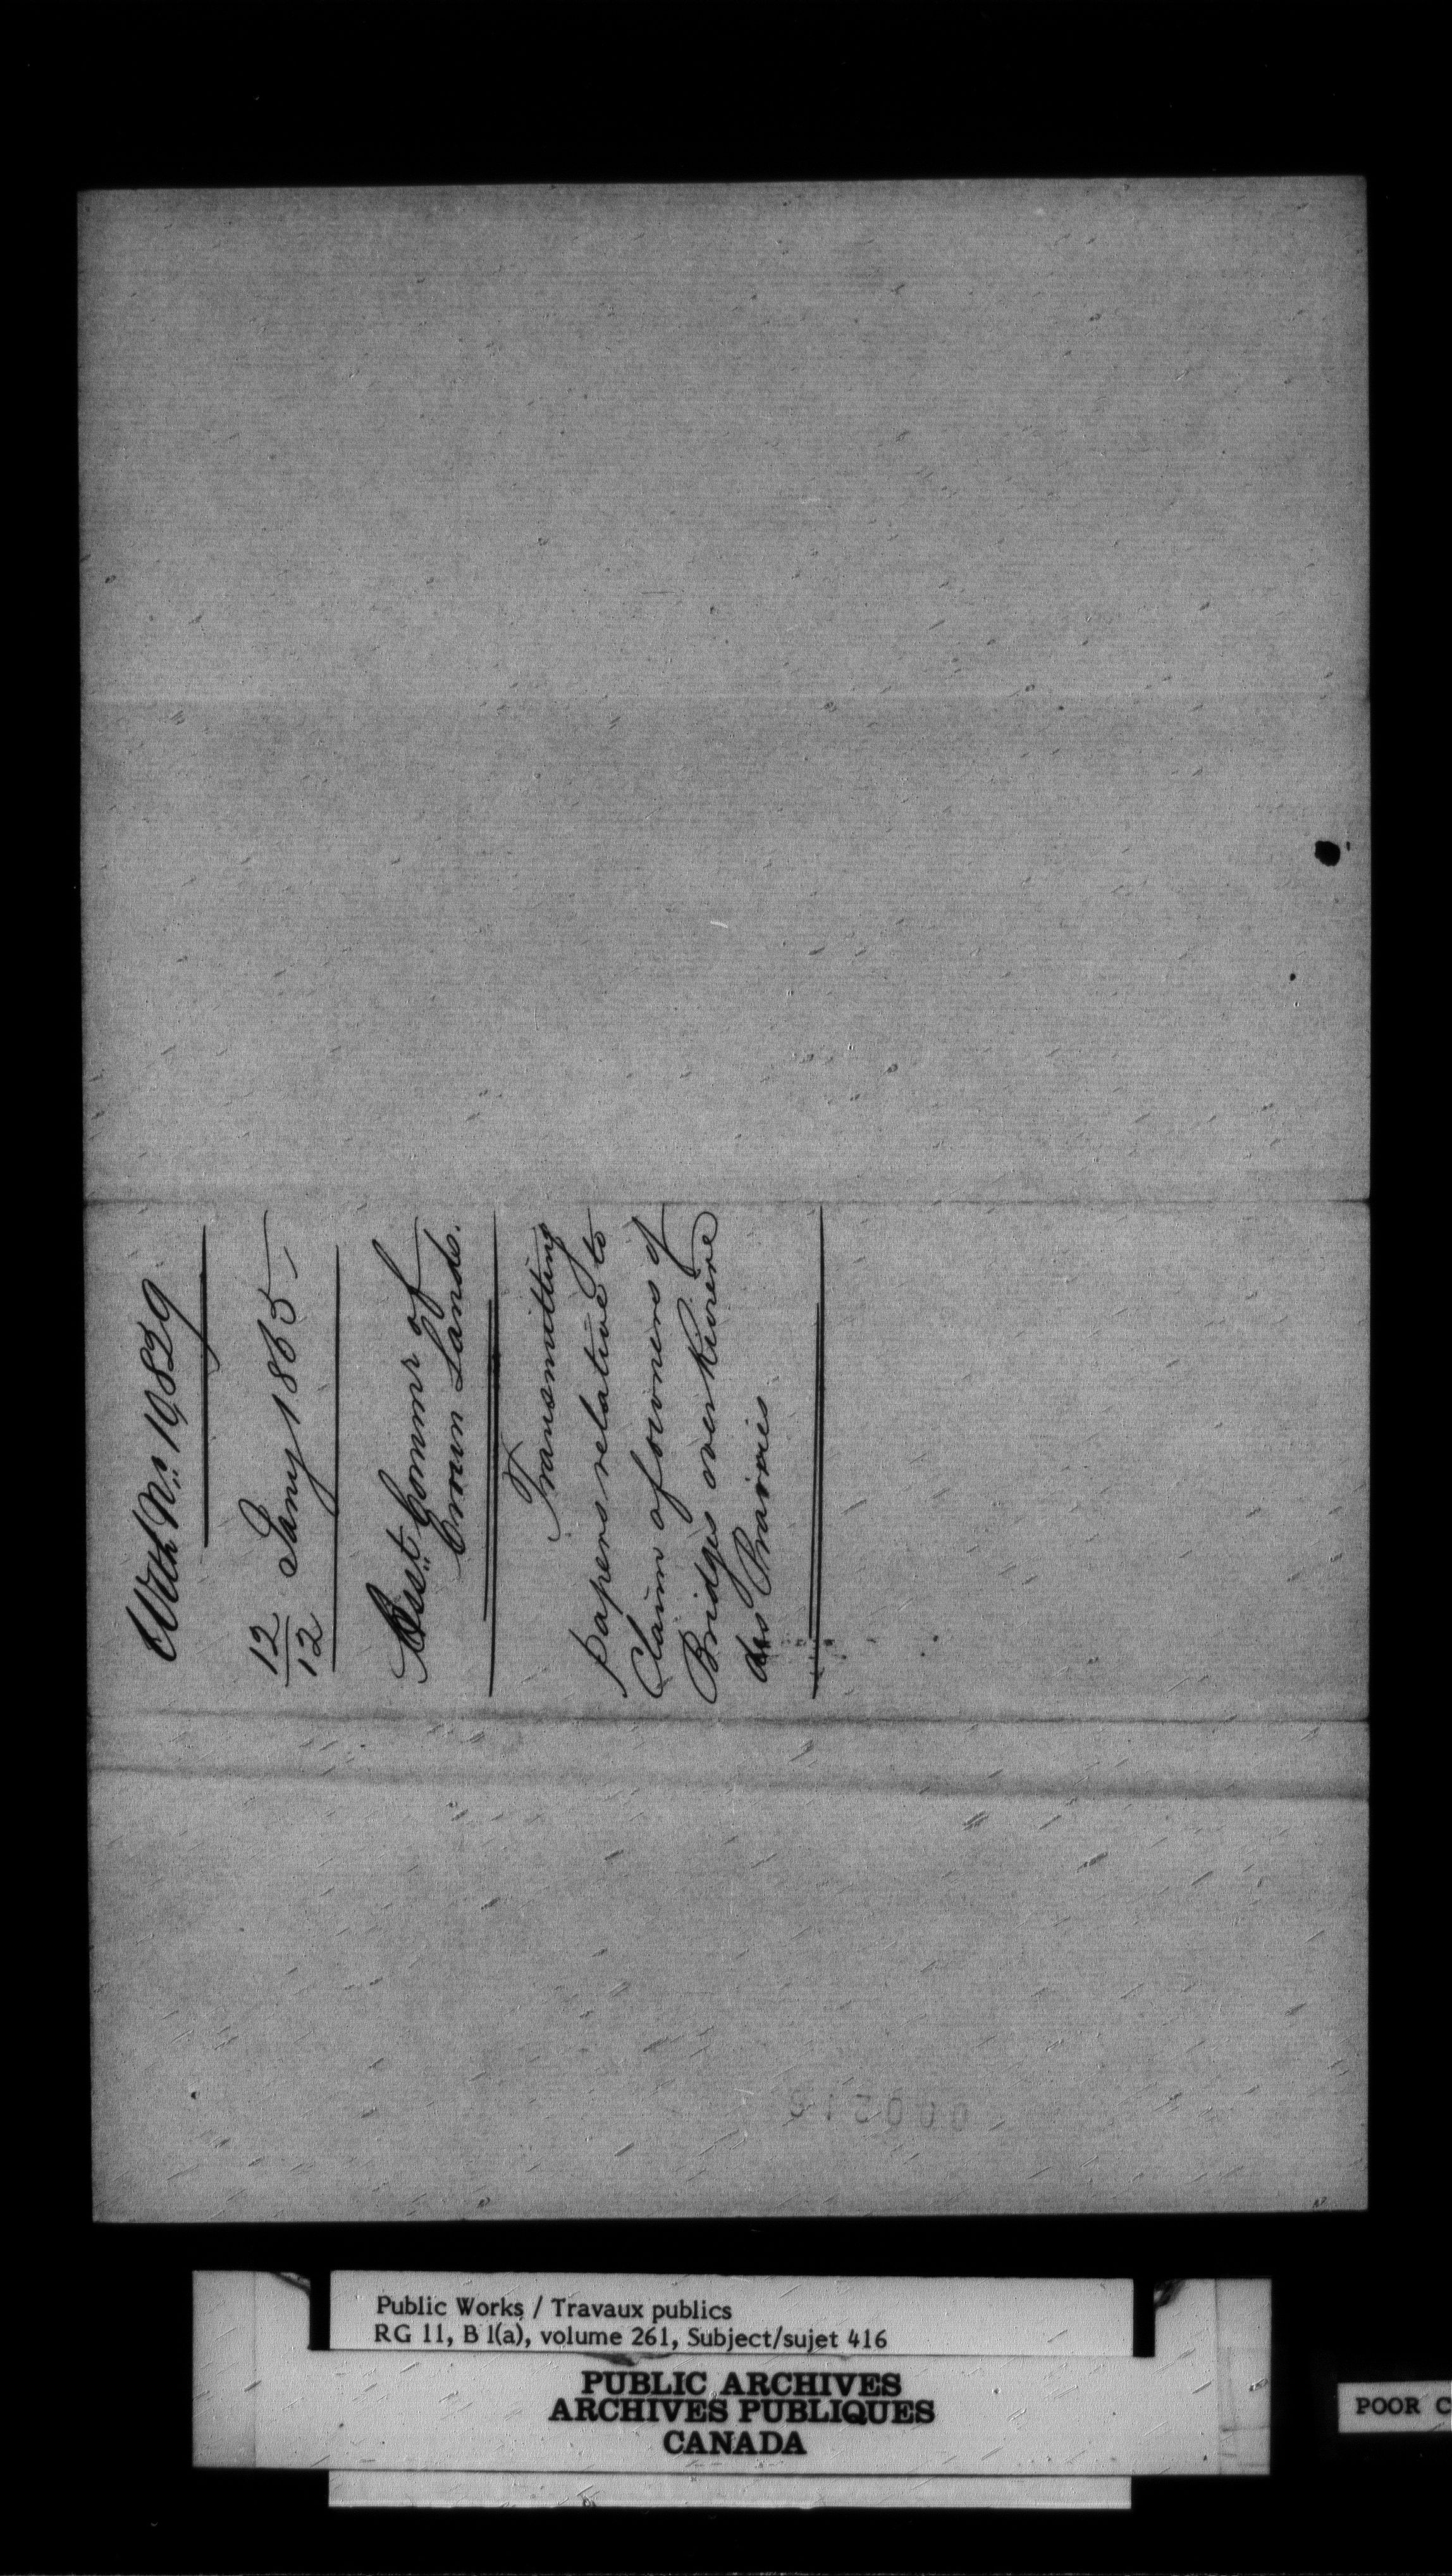 With No. 19829
12/12 Jany 1865
Asst. Commr of
Crown Lands.
Transmitting
papers relative to
Claim of owners of
Bridges over Rivière
des Prairies
Public Works / Travaux publics
RG 11, B 1(a), volume 261, Subject/sujet 416
PUBLIC ARCHIVES
ARCHIVES PUBLIQUES
CANADA
POOR C